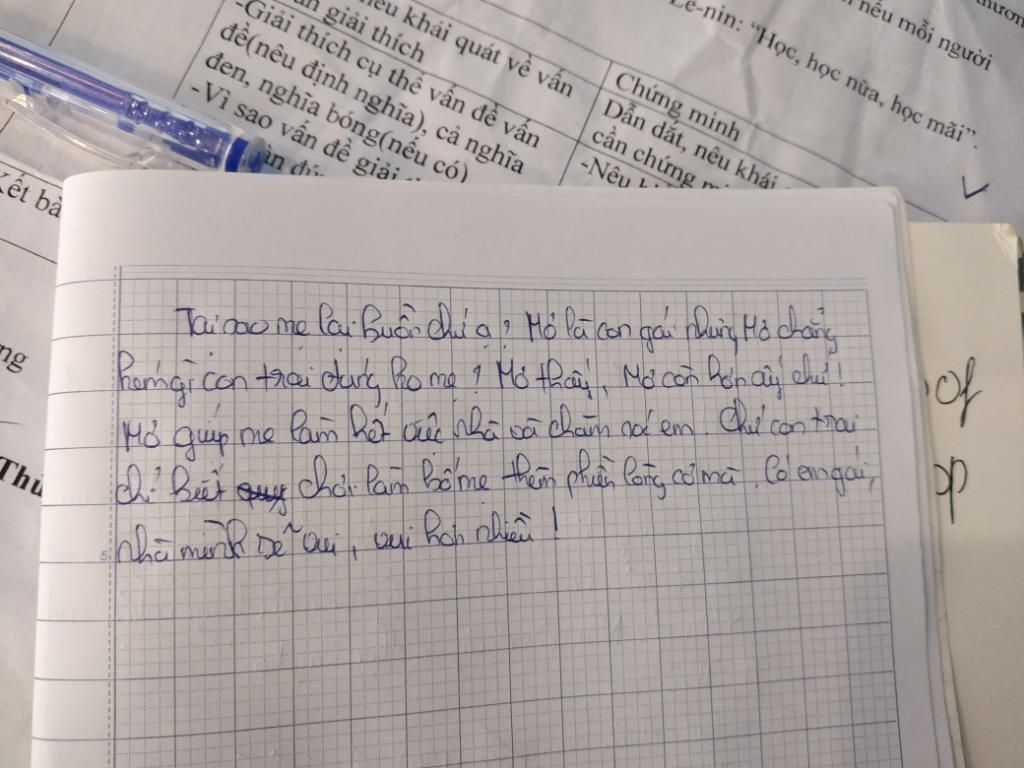 nêu khái quát về vấn
ần giải thích
-Giải thích cụ thể vấn đề vấn
đề(nêu định nghĩa), cả nghĩa
đen, nghĩa bóng(nếu có)
-Vì sao vấn đề giải
Chứng minh
Dẫn dắt, nêu khái
cần chứng
-Nêu
Lê-nin: "Học, học nữa, học mãi".
nếu mỗi người
Kết bà
ng
Thú
of
op
Tại sao mẹ lại buồn chứ ạ? Mơ là con gái nhưng Mơ chẳng
kém gì con trai đúng ko mẹ? Mơ thấy, Mơ còn hơn ấy chứ!
Mơ giúp mẹ làm hết việc nhà và chăm nơi em. Chứ con trai
chỉ biết quy chơi làm bố mẹ thêm phiền lòng cơ mà. Có em gái,
nhà mình sẽ vui, vui hơn nhiều!
5